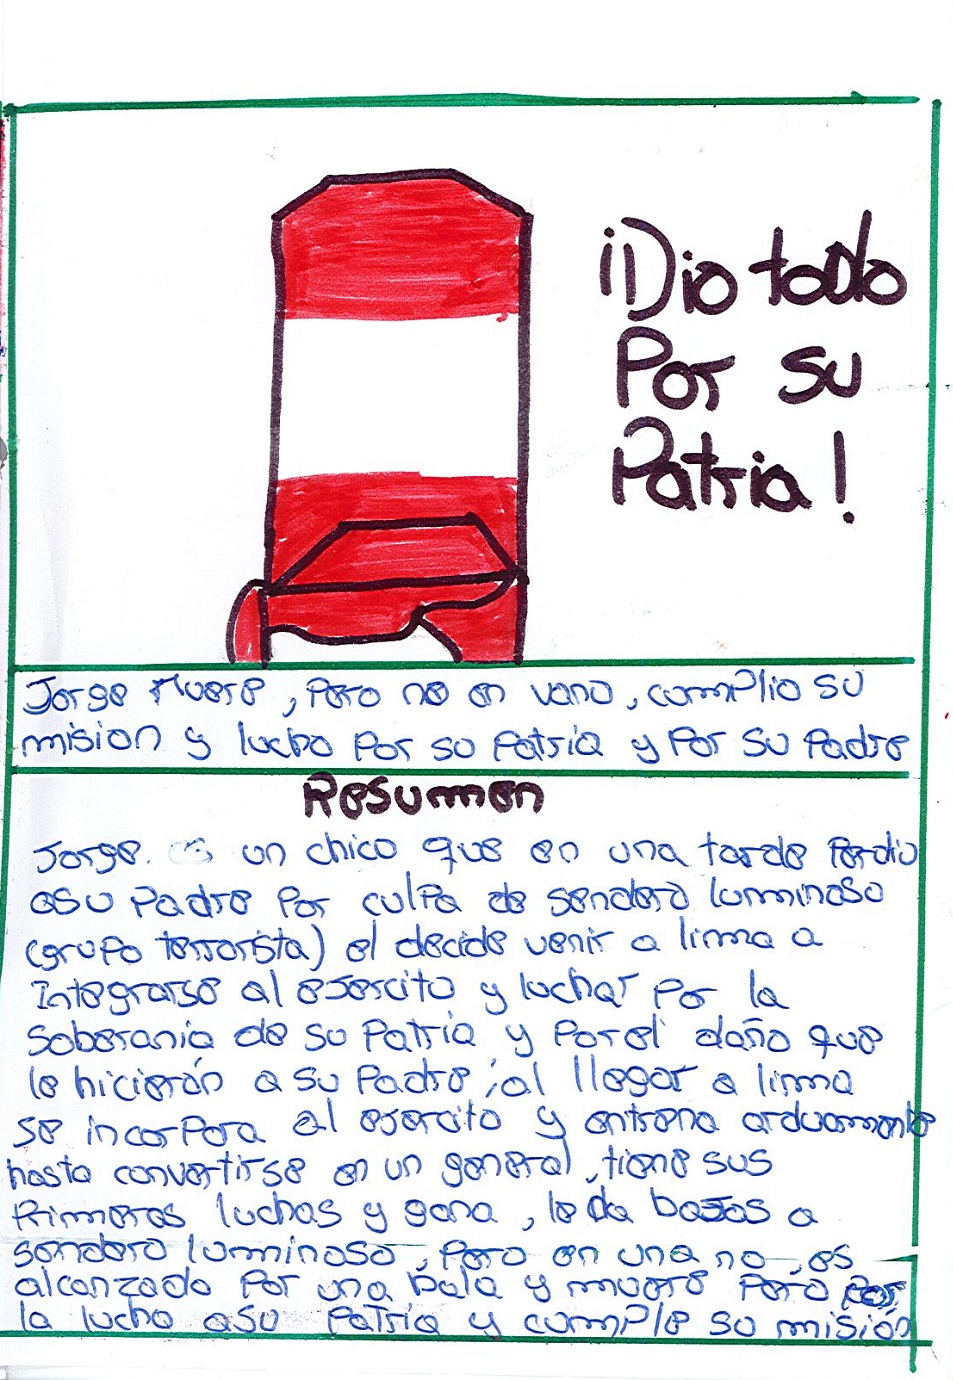 ¡Dio todo
Por su
Patria!
Jorge Muere, Pero no en vano, cumplio su
mision y lucho Por su Patria y Por su Padre
Resumen
Jorge es un chico que en una tarde Perdio
asu Padre Por culpa de sendero luminoso
(grupo terrorista) el decide venir a lima a
Integrarse al ejercito y luchar Por la
soberania de su Patria y Porel daño que
le hicierón a su Padre, al llegar a lima
se incorpora al ejercito y entrena arduamente
hasta convertirse en un general, tiene sus
Primeras luchas y gana, le da bajas a
sendero luminoso, Pero en una no, es
alcanzado Por una bala y muere Pero Por
la lucho asu Patria y cumple su misión